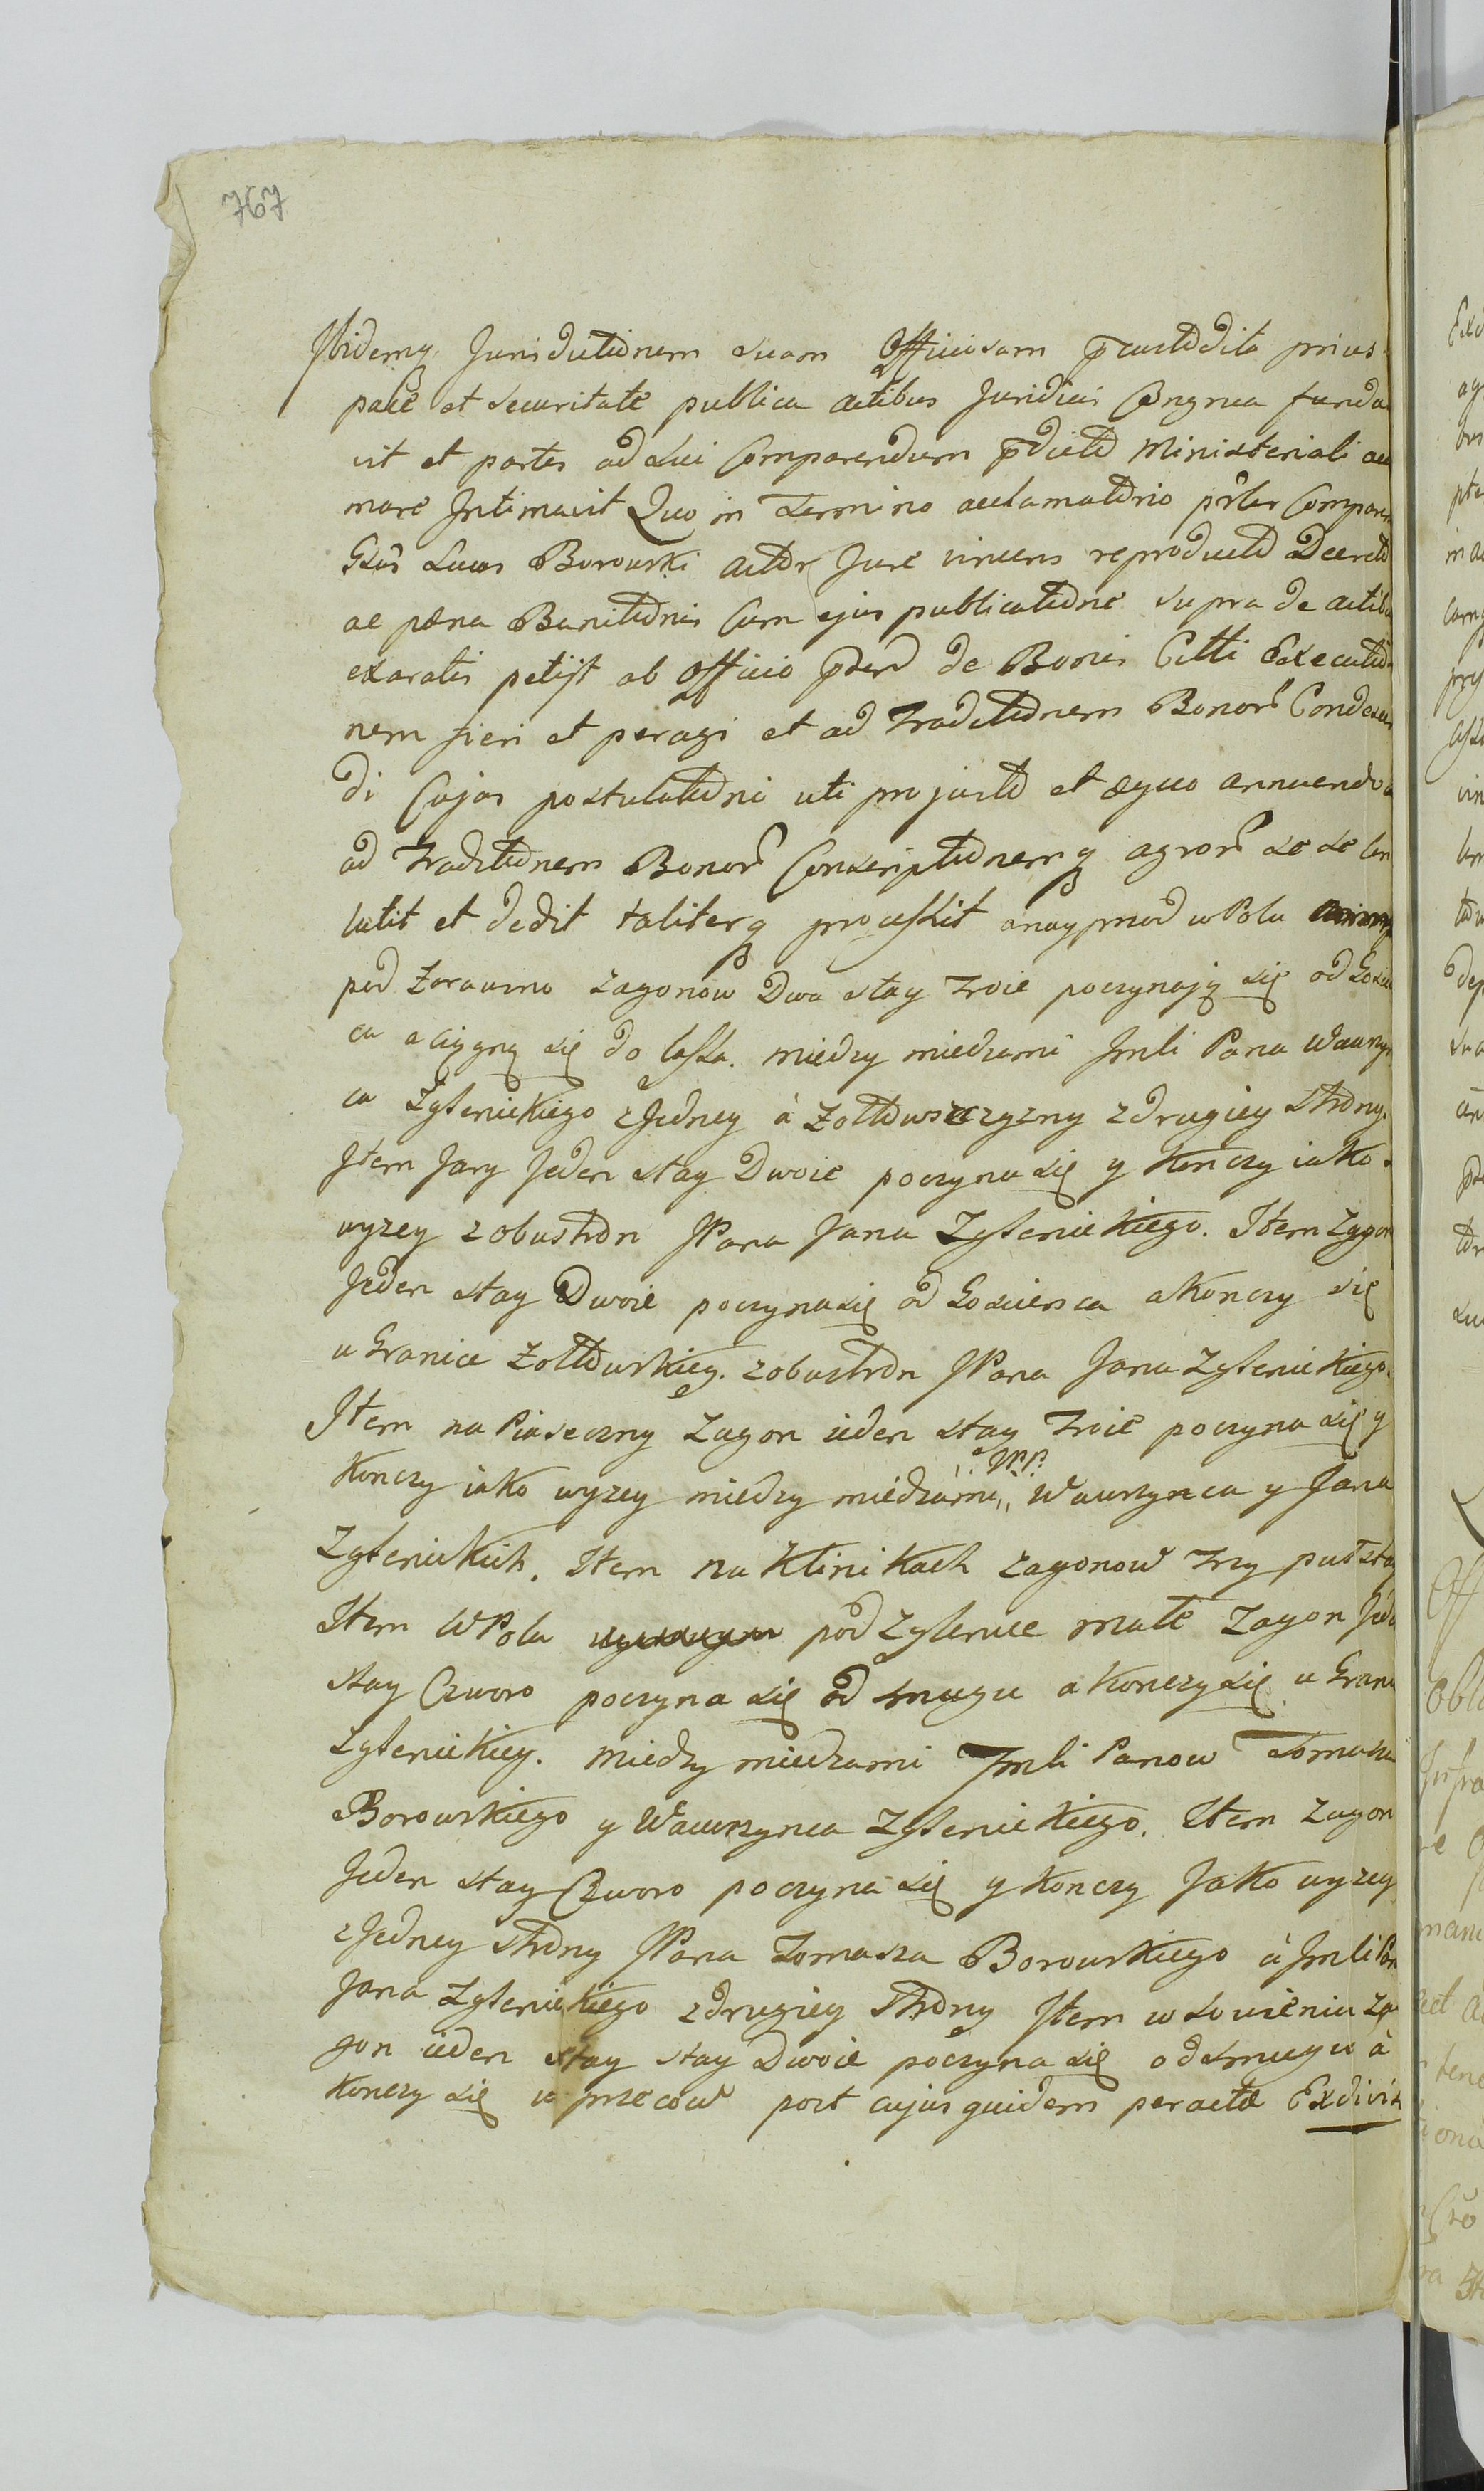 767
Ibidemq Jurisdictionem suam Officiosam p̄custodita prius
pace et securitate publica actibus Juridicis Congrua funda
vit et partes ad sui Comparendum p̄dicto Ministeriali acla
mare Intimavit Quo in Termino acclamatorio prtēr Comparen
Gsūs Lucas Borowski actor Jure vincens reproducto Decreto
ac pæna Banitionis Cum ejus publicatione supra de actibus
exaratis petijt ab Officio p̄senti de Bonis Citti Executio
nem fieri et peragi et ad Traditionem Bonorū Condescen
di Cujus postulationi uti pro justo et æquo annuendo
ad Traditionem Bonorū Conscriptionemq agrorū se se con
tulit et dedit taliterq processit a nayprzod w Polu
pod Zorawino zagonow Dwa stay Troie poczynaią się od Gosciń
ca a ciągną się do lassa. miedzy miedzami Jmći Pana Wawrzyń
ca Zgłenickiego z Jedney à Zołtowszczyzny z drugiey strony.
Item Jary Jeden stay Dwoie poczyna się y kończy iako
wyzey z obustron JPana Jana Zgłenickiego. Item Zagon
Jeden stay Dwoie poczyna się od Goscienca a konczy się
u Granice Zołtowskiey. z obustron JPana Jana Zgłenickiego.
Item na Piaseczny Zagon ieden stay Troie poczyna się y
konczy iako wyzey miedzy miedzami JPP. Wawrzynca y Jana
Zgłenickich. Item na Klinikach zagonow Trzy puł sta
Item w Polu pod Zglenice małe Zagon Jede
stay Czworo poczyna się od smugu a konczy się u Grani
Zgłenickiey. miedzy miedzami Jmći Panow Tomasza
Borowskiego y Wawrzynca Zgłenickiego. Item Zagon
Jeden stay Czworo poczyna się y konczy Jako wyzey
z Jedney strony JPana Tomasza Borowskiego à Jmći Pan
Jana Zgłenickiego z drugiey strony Item w Łowieniu Za
gon ieden stay stay Dwoie poczyna się od smugu à
konczy się u przecow post cujus quidem peractæ Exdivis